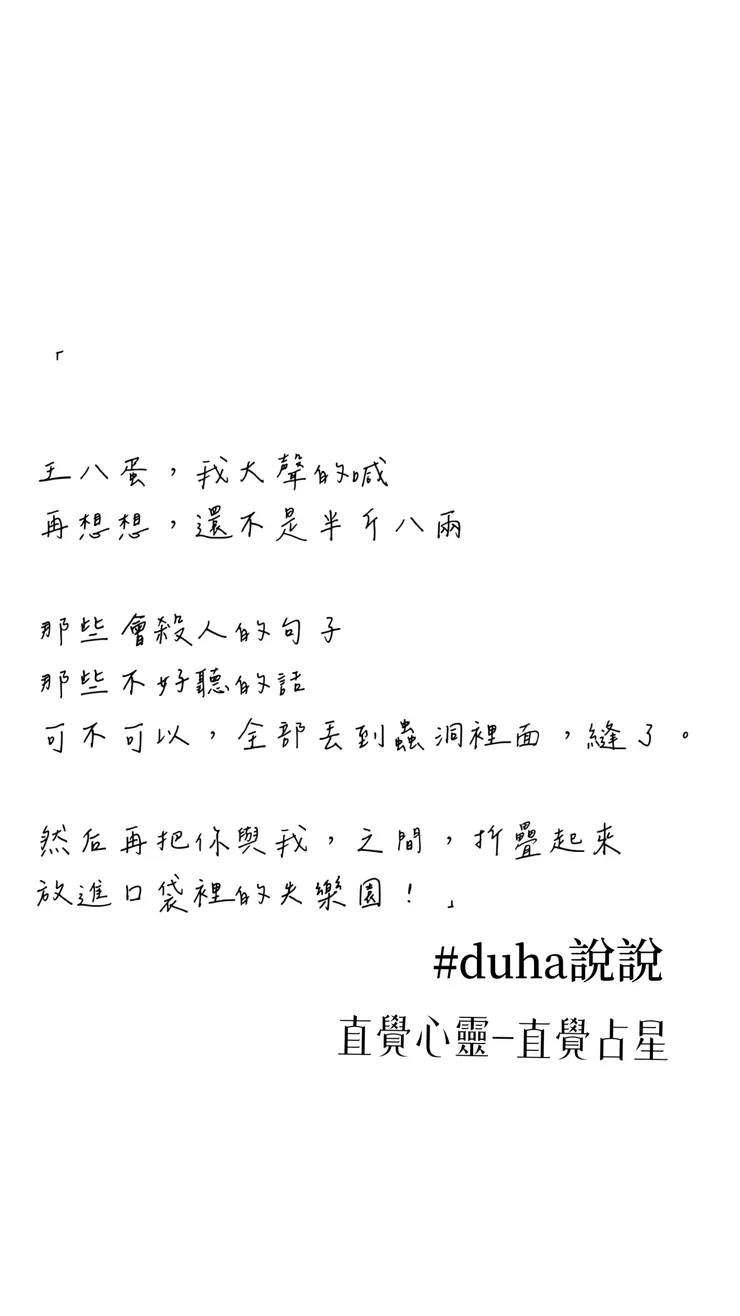 「
王八蛋，我大聲的喊
再想想，還不是半斤八兩
那些會殺人的句子
那些不好聽的話
可不可以，全部丟到蟲洞裡面，縫了。
然后再把你與我，之間，折疊起來
放進口袋裡的失樂園！」
#duha說說
直覺心靈–直覺占星